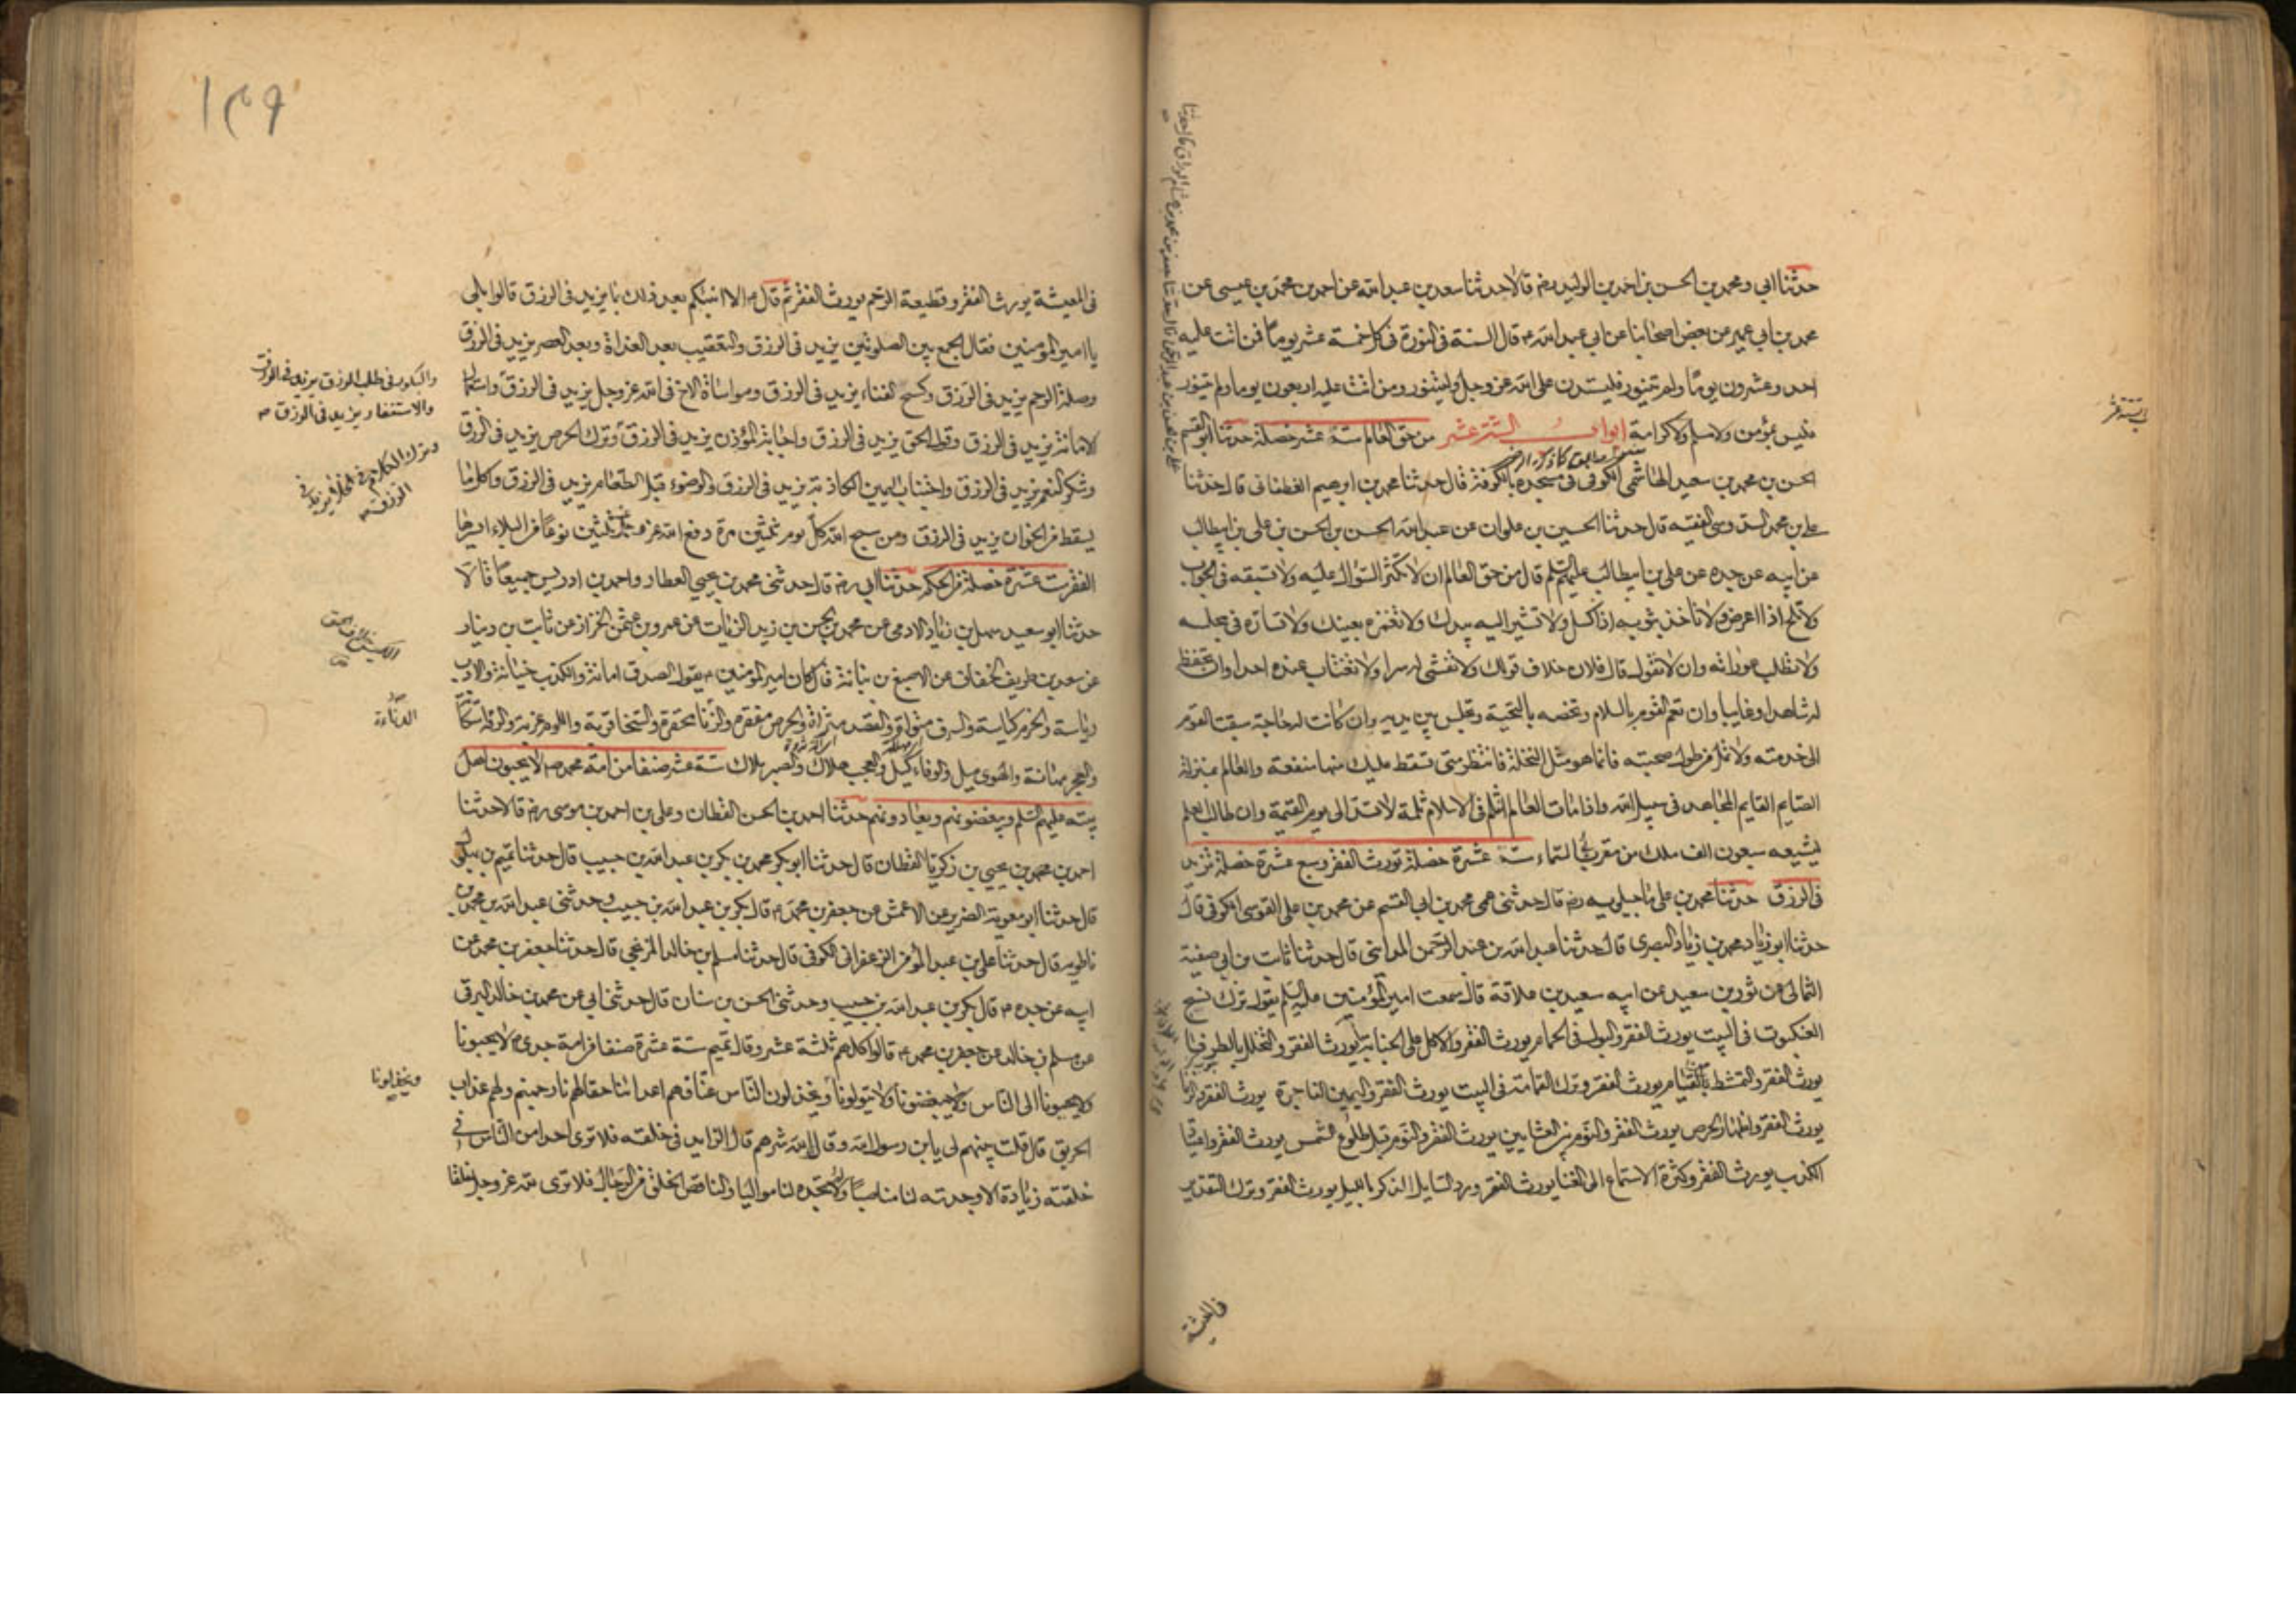 حدثنا ابي ومحمد بن الحسن بن احمد بن الوليد رض قالا حدثنا سعد بن عبد الله عن احمد بن محمد بن عيسى عن
محمد بن ابي عمير عن بعض اصحابنا عن ابي عبد الله ع قال السنة في النورة في كل خمسة عشر يوما فمن اتت عليه
احد وعشرون يوما ولم يتنور فليستدن على الله عز وجل وليتنور ومن اتت عليه اربعون يوما ولم يتنور
فليس بمؤمن ولا مسلم ولا كرامة ابواب الستة عشر من حق العالم ستة عشر خصلة حدثنا ابو القسم
الحسن بن محمد بن سعيد الهاشمي الكوفي في مسجده بالكوفة قال حدثنا محمد بن ابرهيم القطفاني قال حدثنا
علي بن محمد السدوسي الفقيه قال حدثنا الحسين بن علوان عن عبد الله الحسن بن الحسن بن علي بن ابيطالب
عن ابيه عن جده عن علي بن ابيطالب عليهم السلم قال من حق العالم ان لا تكثر السؤال عليه ولا تسبقه في الجواب
ولا تلح اذا اعرض ولا تاخذ بثوبه اذا كسل ولا تشير اليه بيدك ولا تغمزه بعينك ولا تساره في مجلسه
ولا تطلب عوراته وان لا تقول قال فلان خلاف قولك ولا تفشي له سرا ولا تغتاب عنده احدا وان تحفظ
له شاهدا وغايبا وان تعم القوم بالسلام وتخصه بالتحية وتجلس بين يديه وان كانت له حاجة سبقت القوم
الى خدمته ولا تمل من طول صحبته فانما هو مثل النخلة فانتظر متى تسقط عليك منها منفعة والعالم بمنزلة
الصايم القايم المجاهد في سبيل الله واذا مات العالم انثلم في الاسلام ثلمة لا تسد الى يوم القيمة وان طالب العلم
ليشيعه سبعون الف ملك من مقربي السماء ستة عشرة خصلة تورث الفقر وسبع عشرة خصلة تزيد
في الرزق حدثنا محمد بن علي ماجيلويه رض قال حدثني عمي محمد بن ابي القسم عن محمد بن علي القرشي الكوفي قال
حدثنا ابو زياد محمد بن زياد البصري قال حدثنا عبد الله بن عبد الرحمن المدايني قال حدثنا ثابت بن ابي صفية
الثمالي عن ثور بن سعيد عن ابيه سعيد بن علاقة قال سمعت امير المؤمنين عليه السلم يقول ترك نسج
العنكبوت في البيت يورث الفقر والبول في الحمام يورث الفقر والاكل على الجنابة يورث الفقر والتخلل بالطرفا
يورث الفقر والتمشط من القيام يورث الفقر وترك القمامة في البيت يورث الفقر واليمين الفاجرة يورث الفقر والزنا
يورث الفقر واظهار الحرص يورث الفقر والنوم بين العشايين يورث الفقر والنوم قبل طلوع الشمس يورث الفقر واعتياد
الكذب يورث الفقر وكثرة الاستماع الى الغنا يورث الفقر ورد السايل الذكر بالليل يورث الفقر وترك التقدير
في المعيشة
١٣٩
في المعيشة يورث الفقر وقطيعة الرحم يورث الفقر ثم قال ع الا انبئكم بعد ذلك بما يزيد في الرزق قالوا بلى
يا امير المؤمنين فقال الجمع بين الصلوتين يزيد في الرزق والتعقيب بعد الغداة وبعد العصر يزيد في الرزق
وصلة الرحم يزيد في الرزق وكسح الفناء يزيد في الرزق ومواساة الاخ في الله عز وجل يزيد في الرزق واستعمال
الامانة يزيد في الرزق وقول الحق يزيد في الرزق واجابة المؤذن يزيد في الرزق وترك الحرص يزيد في الرزق
وشكر المنعم يزيد في الرزق واجتناب اليمين الكاذبة يزيد في الرزق والوضوء قبل الطعام يزيد في الرزق واكل ما
يسقط من الخوان يزيد في الرزق ومن سبح الله كل يوم ثلثين مرة دفع الله عز وجل عنه سبعين نوعا من البلاء ايسرها
الفقر ست عشرة خصلة من الحكم حدثنا ابي رض قال حدثني محمد بن يحيى العطار واحمد بن ادريس جميعا قالا
حدثنا ابو سعيد سهل بن زياد الادمي عن محمد بن الحسن بن زيد الزيات عن عمرو بن عثمن الخزاز عن ثابت بن دينار
عن سعد بن طريف الخفاف عن الاصبغ بن نباتة قال كان امير المؤمنين ع يقول الصدق امانة والكذب خيانة والادب
رياسة والحزم كياسة والسرف مثواة والقصد مثراة والحرص مفقرة والزنا محقرة والسخا قربة واللوم غربة والرقة استكانة
والعجز مهانة والهوى ميل والوفاء كيل والعجب هلاك والصبر ملاك ستة عشر صنفا من امة محمد ص لا يحبون اهل
بيته عليهم السلم ويبغضونهم ويعادونهم حدثنا احمد بن الحسن القطان وعلي بن احمد بن موسى رض قالا حدثنا
احمد بن محمد بن يحيى بن زكريا القطان قال حدثنا ابو بكر محمد بن بكر بن عبد الله بن حبيب قال حدثنا تميم بن بهلول
قال حدثنا ابو معوية الضرير عن الاعمش عن جعفر بن محمد ع قال بكر بن عبد الله بن حبيب وحدثني عبد الله بن محمد بن
ناطويه قال حدثنا علي بن عبد المؤمن الزعفراني الكوفي قال حدثنا مسلم بن خالد الزنجي قال حدثنا جعفر بن محمد عن
ابيه عن جده ع قال بكر بن عبد الله بن حبيب وحدثني الحسن بن سنان قال حدثني ابي عن محمد بن خالد البرقي
عن مسلم بن خالد عن جعفر بن محمد ع قالوا كلهم ثلثة عشر وقال تميم ستة عشرة صنفا من امة جدي ص لا يحبونا
ولا يحببونا الى الناس ويبغضونا ولا يتولونا ويخذلون الناس عنا فهم اعداؤنا حقا لهم نار جهنم ولهم عذاب
الحريق قال قلت بينهم لي يا ابن رسول الله وقاك الله شرهم قال الزايد في خلقه فلا ترى احدا من الناس في
خلقه زيادة الا وجدته لنا مناصبا ولا تجده لنا مواليا والناقص الخلق من الرجال فلا ترى لله عز وجل خلقا
والبكور في طلب الرزق يزيد في الرزق
والاستغفار يزيد في الرزق ص
وترك الكلام في الخلا يزيد في
الرزق ص
الدناءة
ويخذلونا